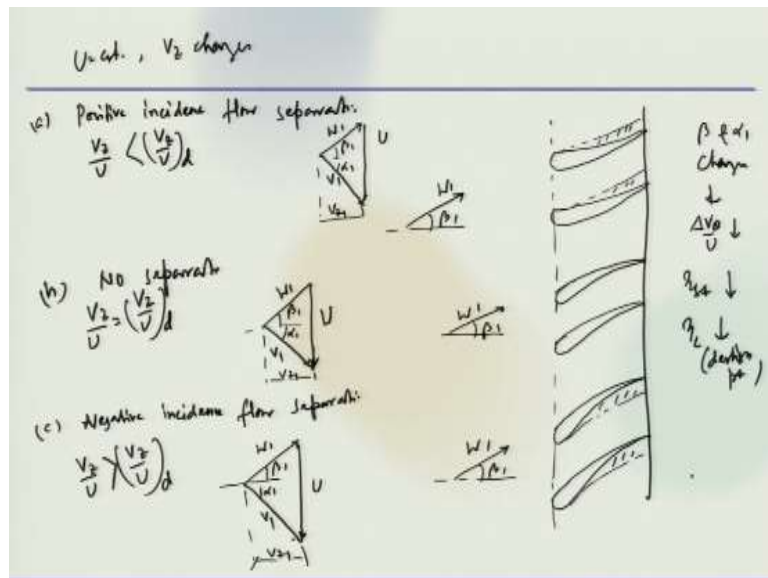 U = cst. , Vz changes
(a) Positive incidence flow separation.
Vz/U < (Vz/U)d
W1
β1
α1
V1
U
Vz1
W1
β1
(b) NO separation
Vz/U = (Vz/U)d
W1
β1
α1
V1
U
Vz1
W1
β1
(c) Negative incidence flow separation
Vz/U > (Vz/U)d
W1
β1
α1
V1
U
Vz1
W1
β1
β & α1
change
↓
ΔVθ/U ↓
ηst ↓
↓